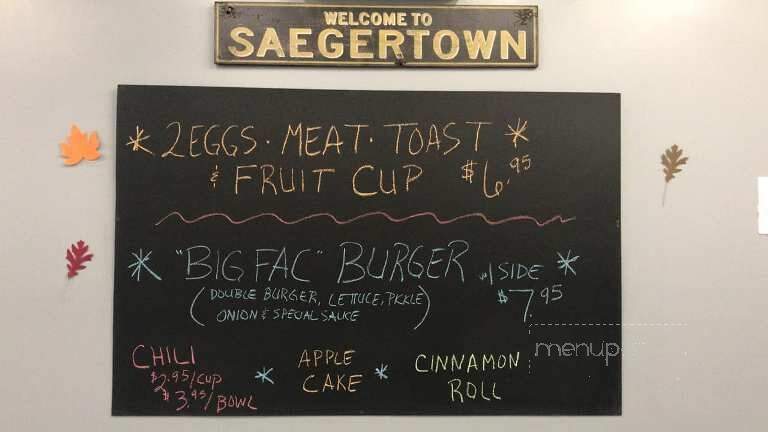 WELCOME TO
SAEGERTOWN
* 2 EGGS · MEAT · TOAST *
& FRUIT CUP $6.95
* "BIG FAC" BURGER w/ 1 SIDE *
(DOUBLE BURGER, LETTUCE, PICKLE
ONION & SPECIAL SAUCE) $7.95
CHILI
$2.95/CUP
$3.95/BOWL
* APPLE
CAKE *
CINNAMON
ROLL
menup